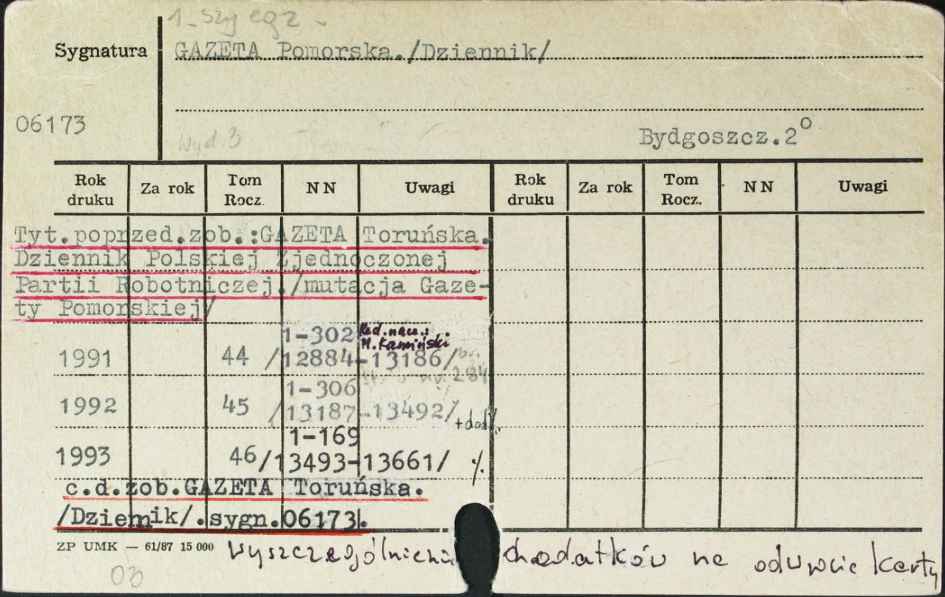 1-szy egz.
Sygnatura GAZETA Pomorska./Dziennik/
06173
Wyd.3 Bydgoszcz.2°
Rok druku Za rok Tom Rocz. NN Uwagi Rok druku Za rok Tom Rocz. NN Uwagi
Tyt.poprzed.zob.:GAZETA Toruńska.
Dziennik Polskiej Zjednoczonej
Partii Robotniczej./mutacja Gaze-
ty Pomorskiej/
1-302 Red.nacz.:
M.Kamiński
1991 44 /12884-13186/
nr 284
1-306
1992 45 /13187-13492/ +dod.
1-169
1993 46/13493-13661/ %
c.d.zob.GAZETA Toruńska.
/Dziennik/.sygn.06173.
ZP UMK — 61/87 15 000 wyszczególnienie dodatków na odwrocie karty
03